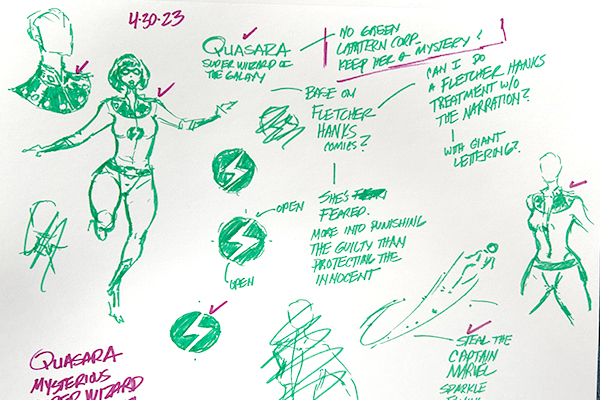 4-30-23
QUASARA
SUPER WIZARD OF
THE GALAXY
NO GREEN
LATATERN CORP.
KEEP HER A MYSTERY!
BASE ON
FLETCHER
HANKS
COMICS?
CAN I DO
A FLETCHER HANKS
TREATMENT W/O
THE NARRATION?
WITH GIANT
LETTERING?
SHE'S
FEARED.
MORE INTO PUNISHING
THE GUILTY THAN
PROTECTING THE
INNOCENT
OPEN
OPEN
STEAL THE
CAPTAIN
MARVEL
SPARKLE
QUASARA
MYSTERIOUS
SUPER WIZARD